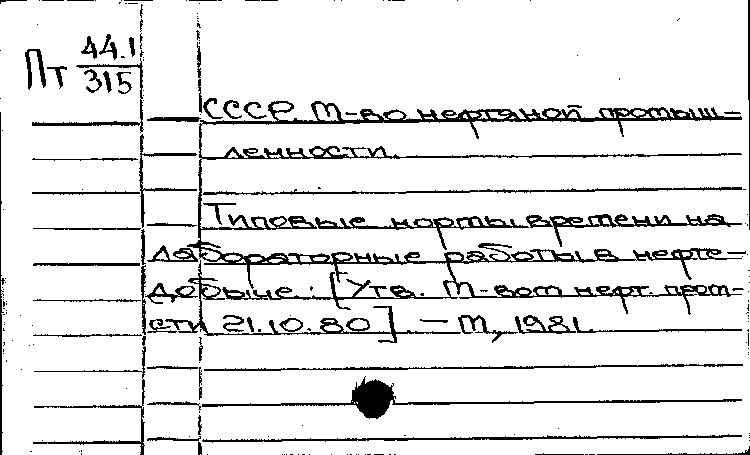 Пт 44.1
315
СССР. М-во нефтяной промыш-
ленности.
Типовые нормы времени на
лабораторные работы в нефте-
добыче: [Утв. М-вом нефт. пром-
сти 21.10.80]. — М, 1981.